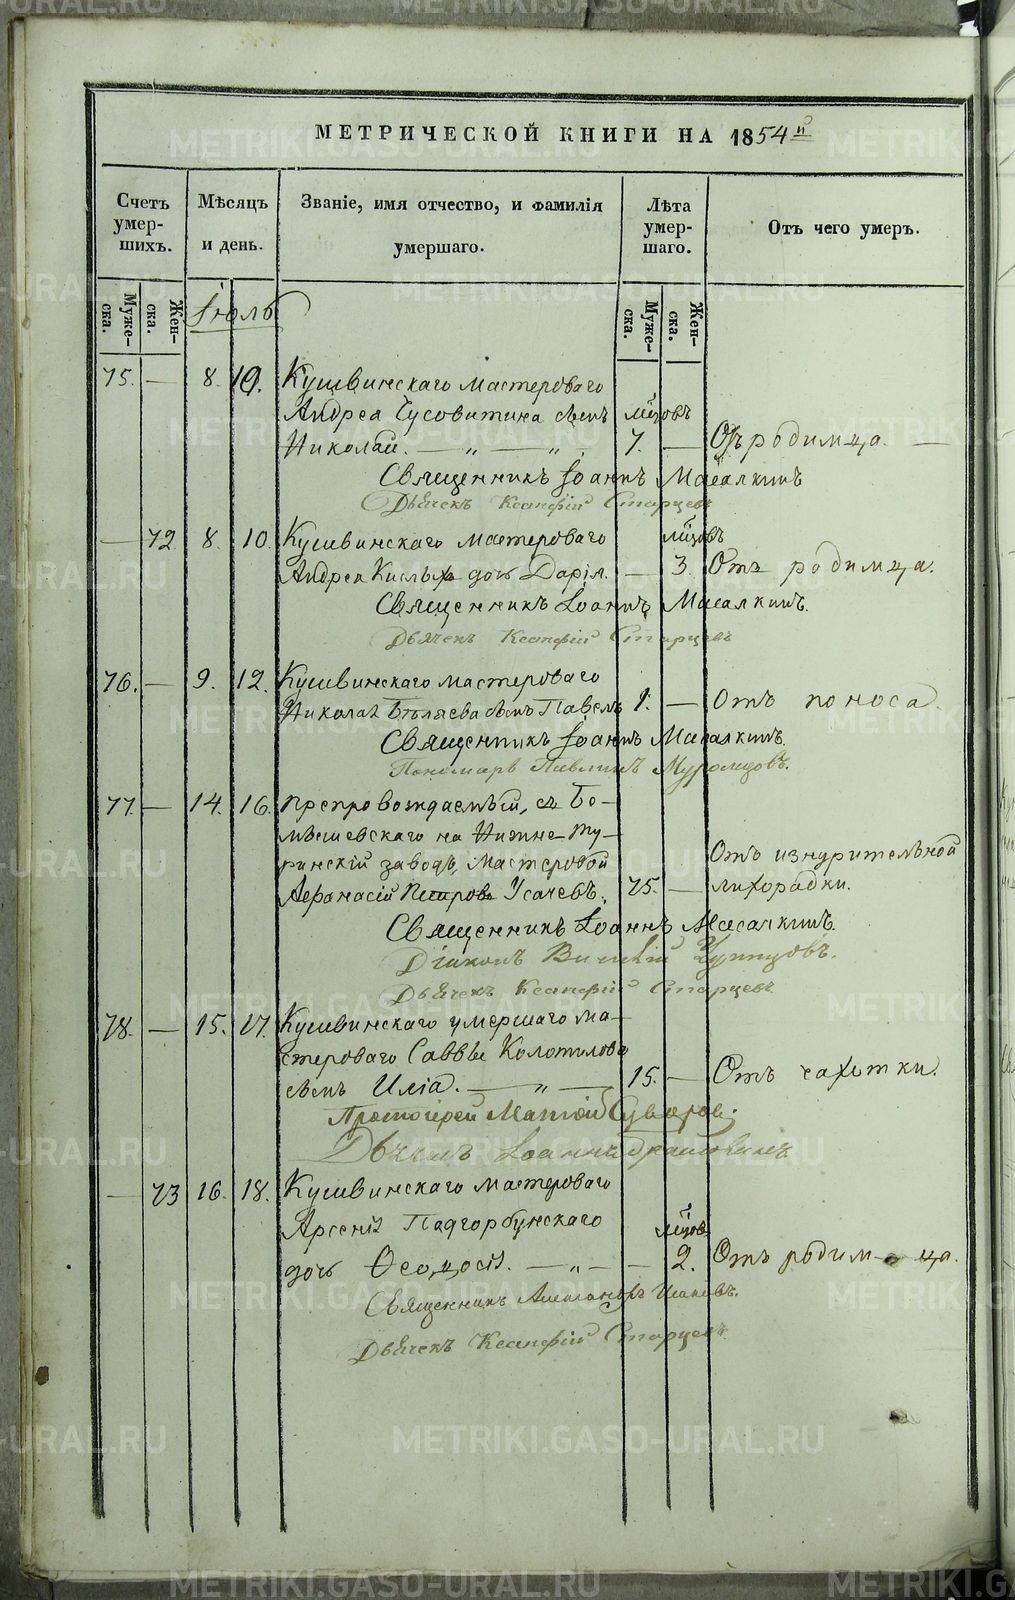 МЕТРИЧЕСКОЙ КНИГИ НА 1854й
Счетъ умер-шихъ.
Мѣсяцъ и день.
Званіе, имя отчество, и фамилія умершаго.
Лѣта умер-шаго.
Отъ чего умеръ.
Муже-ска.
Жен-ска.
Іюль
Муже-ска.
Жен-ска.
75. — 8. 10. Кушвинскаго мастероваго
Андрея Чусовитина сынъ мѣсцовъ
Николай. — „ — „ . 7. — Отъ родимца. —
Священникъ Іоаннъ Масалкинъ
Дьячекъ Ксенофій Старцевъ
— 72 8. 10. Кушвинскаго мастероваго мѣсцовъ
Андрея Кислыхъ дочь Дарія. — 3. Отъ родимца.
Священникъ Іоаннъ Масалкинъ.
Дьячекъ Ксенофій Старцевъ
76. — 9. 12. Кушвинскаго мастероваго
Николая Бѣляева сынъ Павелъ 1. — Отъ поноса.
Священникъ Іоаннъ Масалкинъ.
Пономарь Павлинъ Муромцовъ.
77. — 14. 16. Препровождаемый, съ
на Нижне-Ту-
ринскій заводъ, Мастеровой Отъ изнурительной
Афанасій Петровъ Усачевъ. 75. — лихорадки.
Священникъ Іоаннъ Масалкинъ.
Діаконъ
Дьячекъ Ксенофій Старцевъ
78. — 15. 17. Кушвинскаго умершаго ма-
стероваго Саввы Колотилова
сынъ Илія. — „ — 15. — Отъ чахотки.
Протоіерей
Дьячекъ Іоаннъ
— 73 16. 18. Кушвинскаго мастероваго
Арсенія Подгорбунскаго мѣсцовъ
дочь Ѳеодосія. — „ — — 2. Отъ родимца.
Священникъ Александръ
Дьячекъ Ксенофій Старцевъ
METRIKI.GASO-URAL.RU